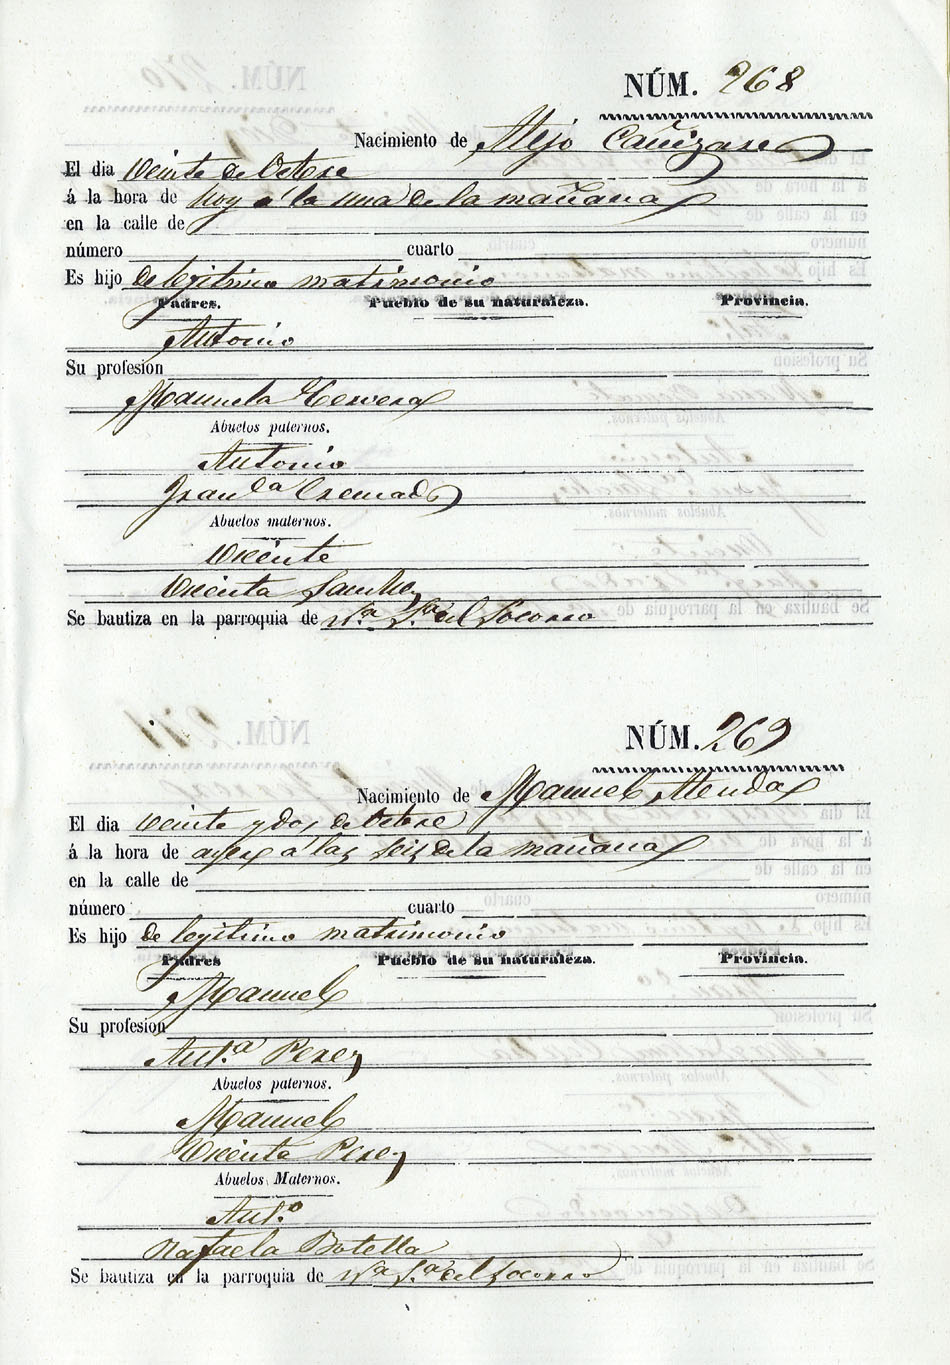 NÚM. 268
Nacimiento de Alejo Cañizares
El dia Veinte de Octere
á la hora de hoy a la una de la mañana
en la calle de
número cuarto
Es hijo de legitimo matrimonio
Padres. Pueblo de su naturaleza. Provincia.
Antonio
Su profesion
Manuela Herrera
Abuelos paternos.
Antonio
Fran.ca Cremades
Abuelos maternos.
Vicente
Vicenta Sanchez
Se bautiza en la parroquia de N.a S.a del Socorro
NÚM. 269
Nacimiento de Manuel
El dia veinte y dos de Octere
á la hora de ayer a las seis de la mañana
en la calle de
número cuarto
Es hijo de legitimo matrimonio
Padres Pueblo de su naturaleza. Provincia.
Manuel
Su profesion
Ant.a Perez
Abuelos paternos.
Manuel
Vicenta Perez
Abuelos Maternos.
Ant.o
Rafaela Botella
Se bautiza en la parroquia de N.a S.a del Socorro